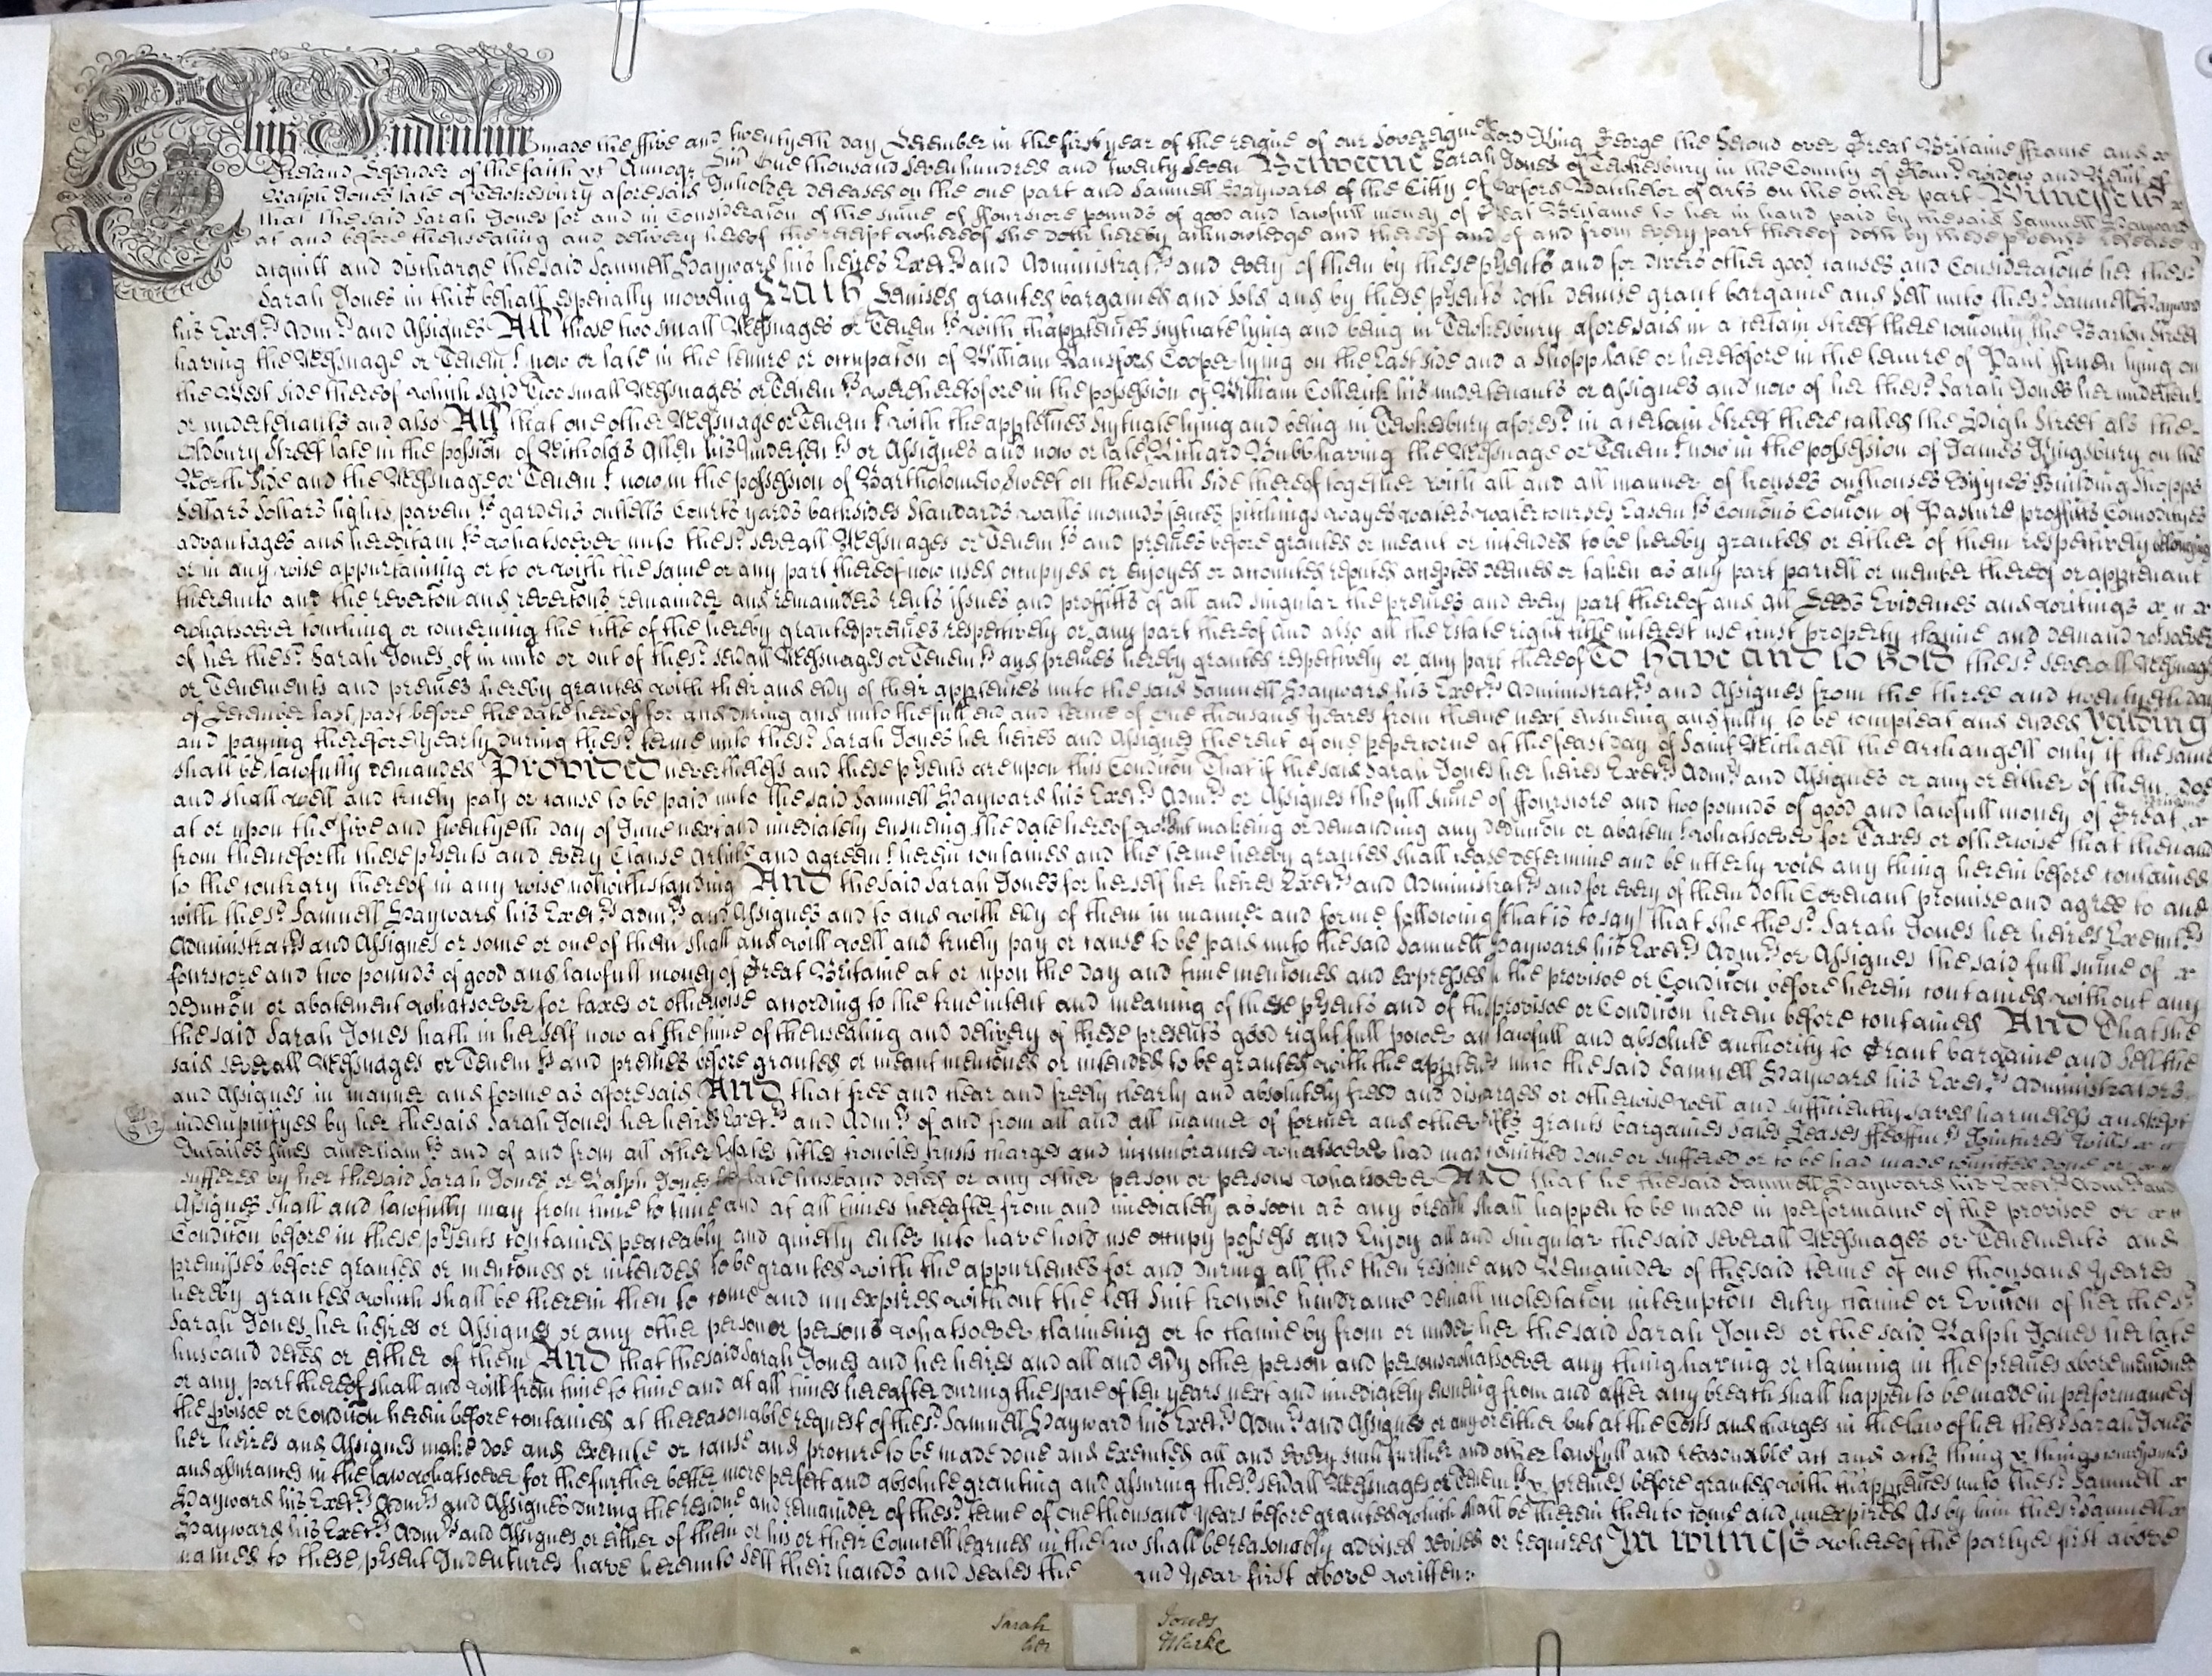 This Indenture made the ffive and twentyeth day December in the first year of the reigne of our Sovereigne Lord King George the Second over Great Britaine ffrance and x
Ireland Defender of the faith &c Annoq Dni One thousand Seven hundred and twenty Seven Betweene Sarah Jones of Tewkesbury in the County of Glouc widow and Relict of
Ralph Jones late of Tewkesbury aforesaid Inholder deceased on the one part and Samuell Hayward of the Citty of Oxford Batchelor of arts on the other part Witnesseth x
that the said Sarah Jones for and in Consideracon of the sume of ffourscore pounds of good and lawfull money of Great Britaine to her in hand paid by the said Samuell Hayward
at and before thensealing and delivery hereof the receipt whereof she doth hereby acknowledge and thereof and of and from every part thereof doth by these psents release
acquitt and discharge the said Samuell Hayward his heires Execrs and Administratrs and every of them by these psents and for divers other good causes and Consideracons her the sd
Sarah Jones in this behalf especially moving Hath demised granted bargained and sold and by these psents doth demise grant bargaine and sell unto the sd Samuell Hayward
his Execrs Admrs and Assignes All those two small Messuages or Tenemts with thapptences scytuate lying and being in Tewkesbury aforesaid in a certain street there comonly the Barton Street
having the Messuage or Tenemt now or late in the tenure or occupacon of William Ransford Cooper lying on the East side and a Shopp late or heretofore in the tenure of Paul ffruen lying on
the West side thereof which said Two small Messuages or Tenemts were heretofore in the possession of William Collerick his undertenants or assignes and now of her the sd Sarah Jones her undertent
or undertenants and also All that one other Messuage or Tenemt with the apptences scytuate lying and being in Tewkesbury aforesd in a certain Street there called the High Street als the
Oldbury Street late in the possion of Nicholas Allen his undertents or Assignes and now or late Richard Bubb having the Messuage or Tenemt now in the possession of James Kingsbury on the
North Side and the Messuage or Tenemt now in the possession of Bartholomew Sweet on the South side thereof together with all and all manner of houses outhouses Edifyces Building Shopps
Sellars Sollars lights pavemts gardens outletts Courts yards backsides Standards walls mounds fences pitchings wayes waters watercourses easemts Comons Comon of Pasture proffitts Comodityes
advantages and hereditamts whatsoever unto the sd severall Messuages or Tenemts and premes before granted or meant or intended to be hereby granted or either of them respectively belonging
or in any wise appurtaining or to or with the same or any part thereof now used occupyed or enjoyed or accounted reputed accepted deemed or taken as any part parcell or member thereof or apptenant
thereunto and the revercon and revercons remainder and remainders rents issues and proffitts of all and singular the premes and every part thereof and all Deeds Evidences and writings x x x
whatsoever touching or concerning the title of the hereby granted premes respectively or any part thereof and also all the Estate right title interest use trust property claime and demand whatsoever
of her the sd Sarah Jones of in unto or out of the sd sevall Messuages or Tenemts and premes hereby granted respectively or any part thereof To Have and to Hold the sd severall Messuages
or Tenements and premes hereby granted with their and evy of their apptences unto the said Samuell Hayward his Execrs Administratrs and Assignes from the three and twentyeth day
of December last past before the date hereof for and during and unto the full end and terme of One thousand Yeares from thence next ensuing and fully to be compleat and ended Yeilding
and paying therefore Yearly during the sd terme unto the sd Sarah Jones her heires and Assignes the rent of one peppercorne at the feast day of Saint Michaell the Archangell only if the same
shall be lawfully demanded Provided nevertheless and these psents are upon this Condicon That if the said Sarah Jones her heires Execrs Admrs and Assignes or any or either of them doe
and shall well and truely pay or cause to be paid unto the said Samuell Hayward his Execrs Admrs or Assignes the full sume of ffourscore and two pounds of good and lawfull money of Great
at or upon the five and twentyeth day of June next and imediately ensuing the date hereof without making or demanding any deduccon or abatemt whatsoever for Taxes or otherwise that then and
from thenceforth these psents and every Clause Article and agreemt herein contained and the terme hereby granted shall cease determine and be utterly void any thing herein before contained
to the contrary thereof in any wise notwithstanding And the said Sarah Jones for herself her heires Execrs and Administratrs and for every of them doth Covenant promise and agree to and
with the sd Samuell Hayward his Execrs Admrs and Assignes and to and with evy of them in manner and forme following (that is to say) that she the sd Sarah Jones her heires Executrs
Administratrs and Assignes or some or one of them shall and will well and truely pay or cause to be paid unto the said Samuell Hayward his Execrs Admrs or Assignes the said full sume of x
fourscore and two pounds of good and lawfull money of Great Britaine at or upon the day and time menconed and expressed the provisoe or Condicon before herein contained without any
deduccon or abatement whatsoever for taxes or otherwise according to the true intent and meaning of these psents and of the provisoe or Condicon herein before contained And That she
the said Sarah Jones hath in herself now at the time of thensealing and delivery of these presents good right full power and lawfull and absolute authority to Grant bargaine and sell the
said severall Messuages or Tenemts and premes before granted or meant menconed or intended to be granted with the apptences unto the said Samuell Hayward his Execrs Administrators
and Assignes in manner and forme as aforesaid And that free and clear and freely clearly and absolutely freed and discharged or otherwise well and sufficiently saved harmeless and kept
indempnifyed by her the said Sarah Jones her heires Execrs and Admrs of and from all and all manner of former and other gifts grants bargaines sales Leases ffeoffmts Jointures Wills x x
Intailes fines amerciamts and of and from all other Estates titles troubles trusts charges and incumbrances whatsoever had made comitted done or suffered or to be had made comitted done or x x
suffered by her the said Sarah Jones or Ralph Jones her late husband deced or any other person or persons whatsoever And that he the said Samuell Hayward his Execrs Admrs and
Assignes shall and lawfully may from time to time and at all times hereafter from and imediately as soon as any breach shall happen to be made in performance of the provisoe or x x
Condicon before in these psents contained peaceably and quietly enter into have hold use occupy possess and Enjoy all and singular the said severall Messuages or Tenements and
premisses before granted or menconed or intended to be granted with the appurtences for and during all the then residue and Remainder of the said terme of one thousand Yeares
hereby granted which shall be therein then to come and unexpired without the lett Suit trouble hindrance deniall molestacon interrupcon entry claime or Eviccon of her the sd
Sarah Jones her heires or Assignes or any other person or persons whatsoever claimeing or to claime by from or under her the said Sarah Jones or the said Ralph Jones her late
husband deced or either of them And that the said Sarah Jones and her heires and all and evy other person and persons whatsoever any thing having or claiming in the premes abovemenconed
or any part thereof shall and will from time to time and at all times hereafter during the space of ten years next and imediately ensuing from and after any breach shall happen to be made in performance of
the provisoe or Condicon herein before contained at the reasonable request of the sd Samuell Hayward his Execrs Admrs and Assignes or any or either but at the Costs and charges in the law of her the sd Sarah Jones
her heires and Assignes make doe and execute or cause and procure to be made done and Executed all and every such further and other lawfull and reasonable act and acts thing & things conveyances
and assurances in the law whatsoever for the further better more perfect and absolute granting and assuring the sd sevall Messuages or Tenemts & premes before granted with thapptences unto the sd Samuell x
Hayward his Execrs Admrs and Assignes during the residue and remainder of the sd terme of one thousand years before granted which shall be therein then to come and unexpired As by him the sd Samuell x
Hayward his Execrs Admrs and Assignes or either of them or his or their Councell learned in the law shall be reasonably advised devised or required In witness whereof the partyes first above
named to these psent Indentures have hereunto sett their hands and seales the and Year first above written:
Sarah Jones
her Marke